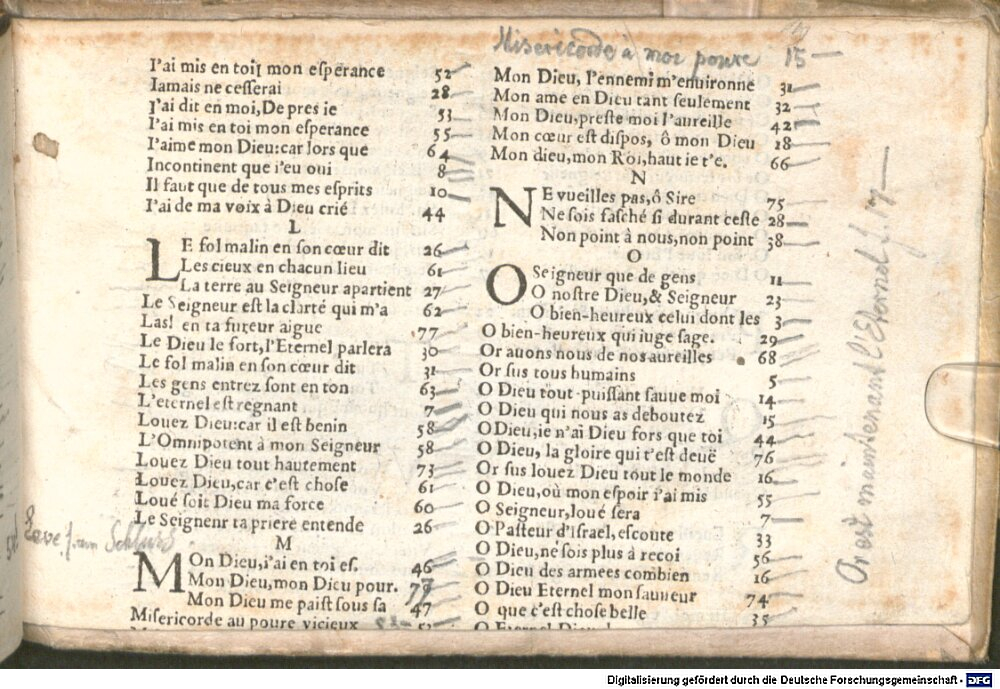 I'ai mis en toiI mon esperance 52
Iamais ne cesserai 28
I'ai dit en moi,De pres ie 53
I'ai mis en toi mon esperance 55
I'aime mon Dieu:car lors que 64
Incontinent que i'eu oui 8
Il faut que de tous mes esprits 10
I'ai de ma voix à Dieu crié 44
L
LE fol malin en son cœur dit 26
Les cieux en chacun lieu 61
La terre au Seigneur apartient 27
Le Seigneur est la clarté qui m'a 62
Las! en ta fureur aigue 77
Le Dieu le fort,l'Eternel parlera 30
Le fol malin en son cœur dit 31
Les gens entrez sont en ton 63
L'eternel est regnant 7
Louez Dieu:car il est benin 58
L'Omnipotent à mon Seigneur 58
Louez Dieu tout hautement 73
Louez Dieu,car c'est chose 61
Loué soit Dieu ma force 60
Le Seignenr ta priere entende 26
Schluss
M
MOn Dieu,i'ai en toi es. 46
Mon Dieu,mon Dieu pour.
Mon Dieu me paist sous sa 47
Misericorde au poure vicieux
Misericorde à moi poure 15
Mon Dieu, l'ennemi m'enuironne 31
Mon ame en Dieu tant seulement 32
Mon Dieu,preste moi l'aureille 42
Mon cœur est dispos, ô mon Dieu 18
Mon dieu,mon Roi,haut ie t'e. 66
N
NE vueilles pas,ô Sire 75
Ne sois fasché si durant ceste 28
Non point à nous,non point 38
O
O Seigneur que de gens 11
O nostre Dieu,& Seigneur 23
O bien-heureux celui dont les 3
O bien-heureux qui iuge sage. 29
Or auons nous de nos aureilles 68
Or sus tous humains 5
O Dieu tout-puissant sauue moi 14
O Dieu qui nous as deboutez 15
O Dieu,ie n'ai Dieu fors que toi 44
O Dieu, la gloire qui t'est deuë 76
Or sus louez Dieu tout le monde 16
O Dieu,où mon espoir i'ai mis 55
O Seigneur,loué sera 7
O Pasteur d'Israel,escoute 33
O Dieu,ne sois plus à recoi 56
O Dieu des armees combien 16
O Dieu Eternel mon sauueur 74
O que c'est chose belle 35
O Eternel
Or est maintenant l'Eternel f. 17
Digitalisierung gefördert durch die Deutsche Forschungsgemeinschaft - DFG